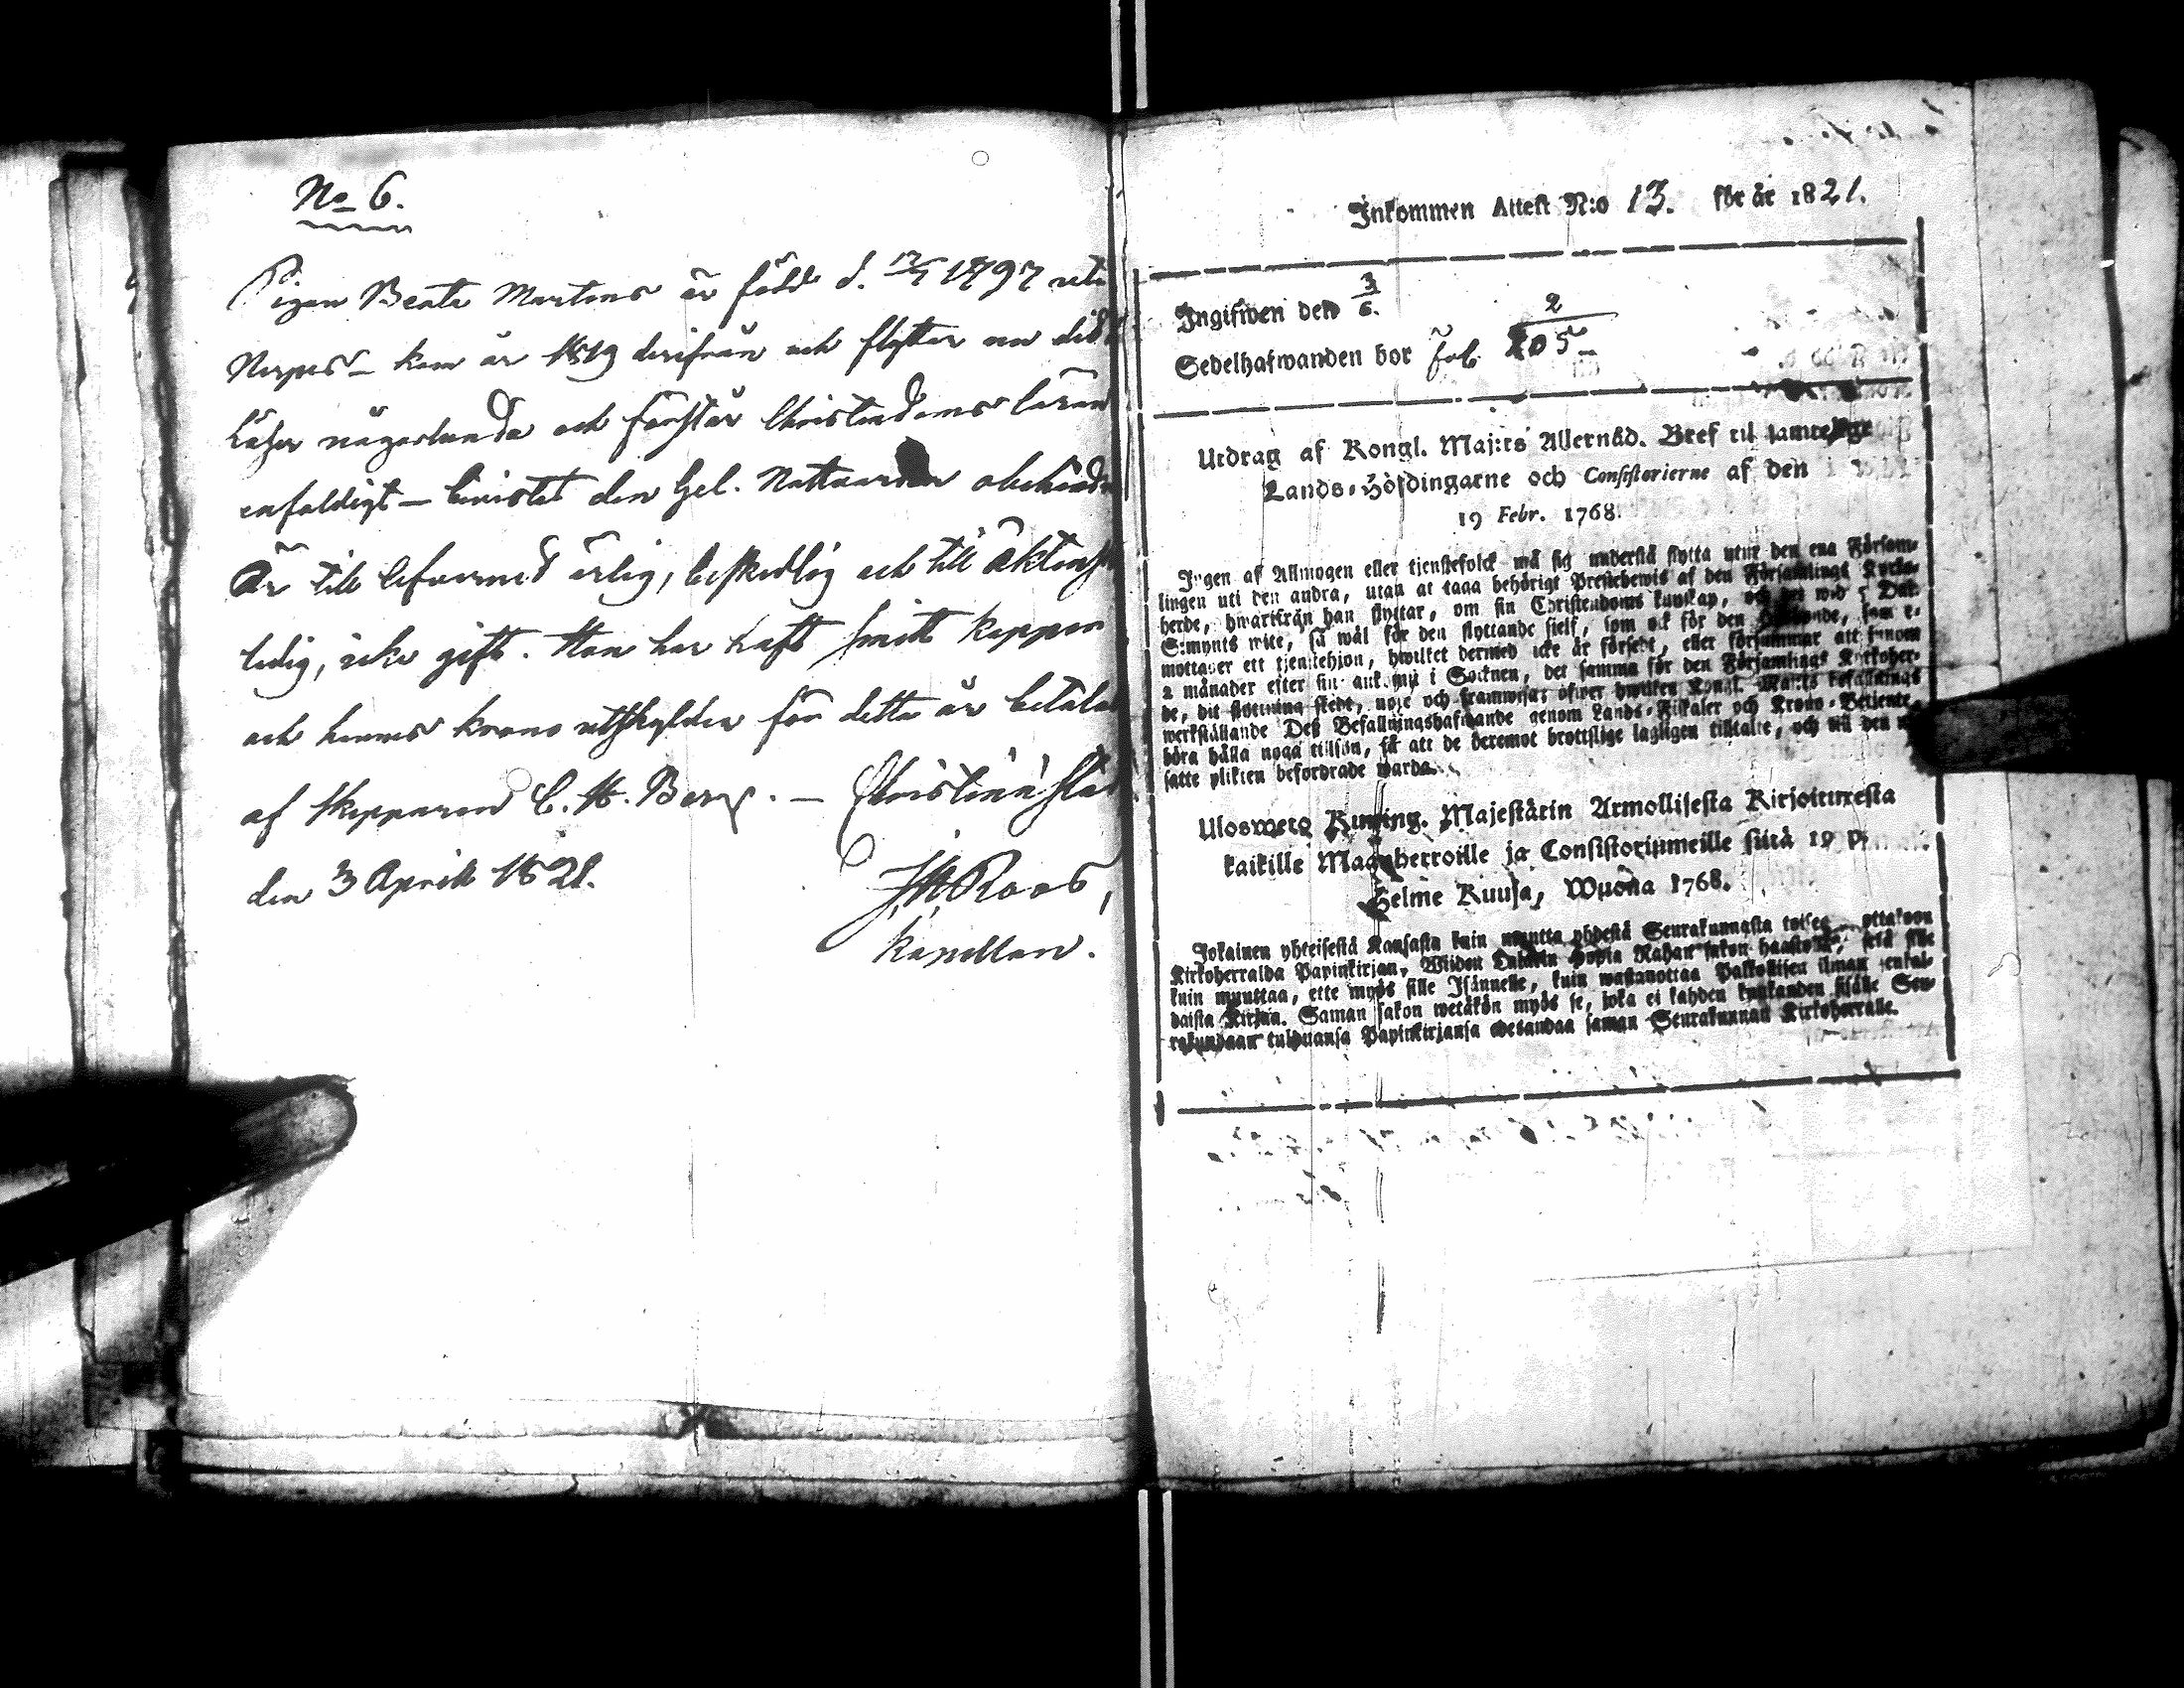 No 6.
Pigan Beata Martens är född d. 12/7 1797 uti
Nerpes – kom år 1819 derifrån och flyttar nu dit
Läser någorlunda och förstår Christendoms läran
enfaldigt – bevistat den Hel. Nattvarden obehindr
Är till lefvernet ärlig, beskedlig och till äktensk
ledig, icke gift. Hon har haft smitt koppor
och hennes krono utskylder för detta år betalas
af skepparen C. H. Berg. – Christinæ stad
den 3 April 1821.
J H Roos,
Kapellan.
Inkommen Attest N:o 13. för år 1821.
Ingifwen den 3/6.
Sedelhafwanden bor fol. 2 205
Utdrag af Kongl. Maj:ts Allernåd. Bref til samtelige
Lands-Höfdingarne och Consistorierne af den
19 Febr. 1768.
Ingen af Allmogen eller tjenstefolck må sig understå flytta utur den ena Försam-
lingen uti den andra, utan at taga behörigt Prestebewis af den Församlings Kyrko-
herde, hwarifrån han flyttar, om sin Christendoms kunskap, och det wid 5 Dal.
S:mynts wite, så wäl för den flyttande sielf, som ock för den som e-
mottager ett tjenstehjon, hwilket dermed icke är försedt, eller försummar att innom
2 månader efter sin ankomst i Socknen, det samma för den Församlings Kyrkoher-
de, dit flyttning skedt, noje och framwisar öfwer hwilken Kongl. Maj:ts befallnings
werkställande Dess Befallningshafwande genom Lands-Fiskaler och Krono-Betjente
böra hålla noga tillsyn, så att de deremot brottslige lagligen tilltalte, och til den
satte plikten befordrade warda.
Ulosweto Kuning. Majestätin Armollisesta Kirjoituxesta
kaikille Maanherroille ja Consistoriumeille siitä 19 p.
Helme Kuusa, Wuona 1768.
Jokainen yhteisestä Kansasta kuin muutta yhdestä Seurakunnasta toiseen ottakoon
Kirkoherralda Papinkirjan, Wiiden Dalarin Hopia Rahan sakon haastolla, sekä sille
kuin muuttaa, ette myös sille Isännelle, kuin wastanottaa Palkollisen ilman senkal-
daista Kirjaa. Saman sakon wetäkön myös se, joka ei kahden kuukauden sisälle Seu-
rakundaan tulduansa Papinkirjansa edesandaa saman Seurakunnan Kirkoherralle.